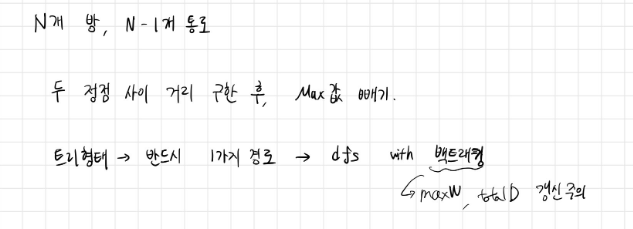 N개 방, N-1개 통로
두 정점 사이 거리 구한 후, Max값 빼기.
트리형태 → 반드시 1가지 경로 → dfs with 백트래킹
↳ maxW, totalD 갱신주의